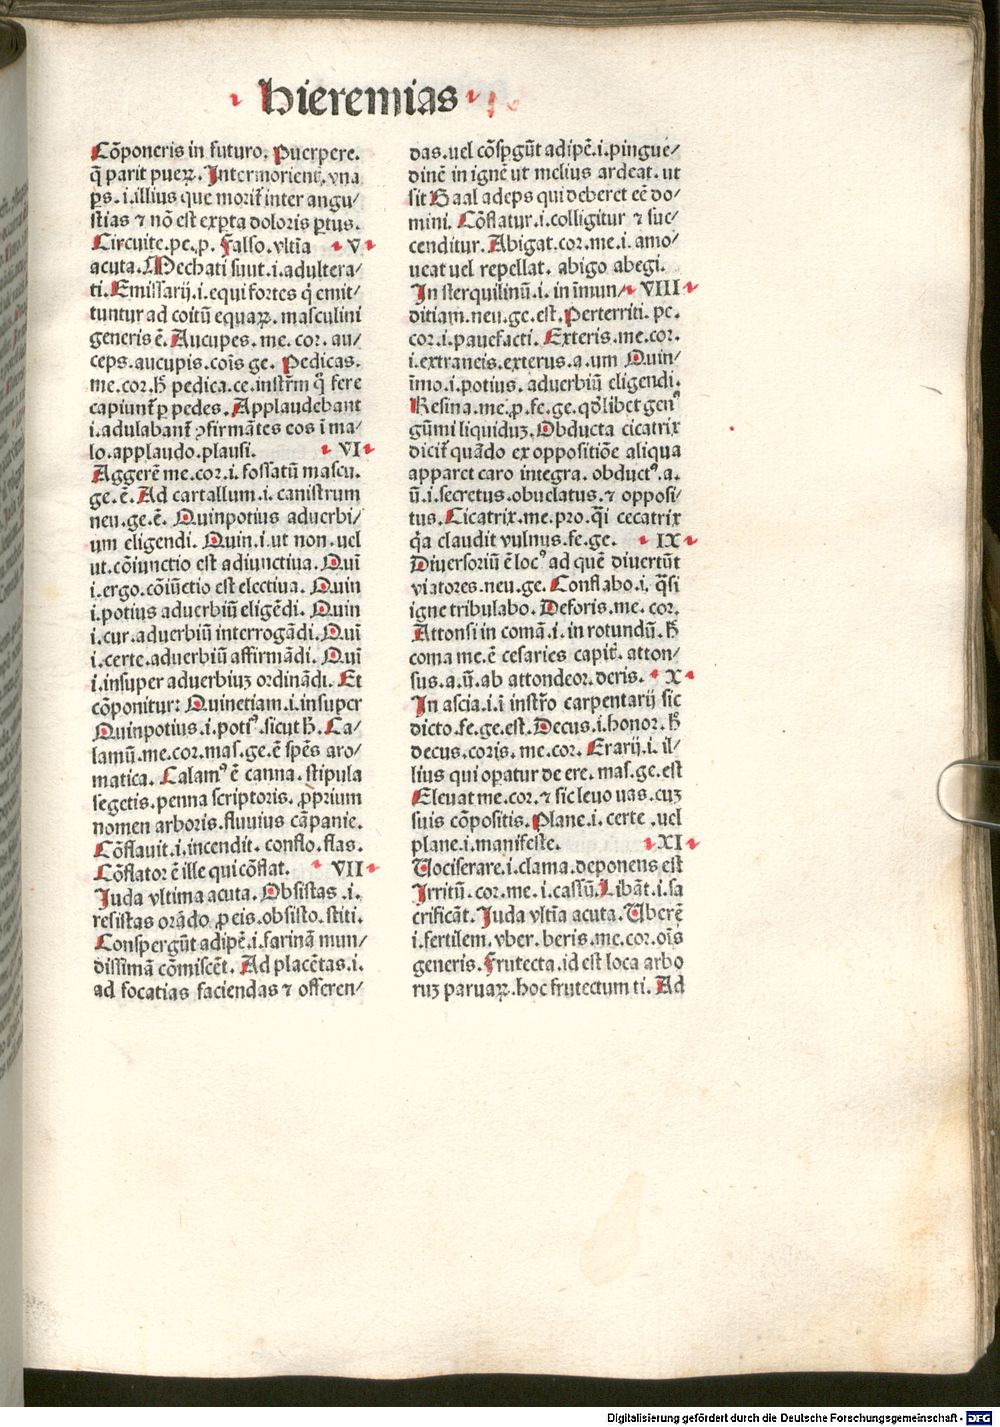 hieremias
Cõponeris in futuro. Puerpere.
q̃ parit pueꝝ. Intermorient̃. vna
ꝑs. i. illius que morit̃ inter angu/
stias ⁊ nõ est exꝑta doloris ꝑtus.
Circuite. pe. p. Falso. vltĩa V
acuta. Mechati sunt. i. adultera/
ti. Emissarij. i. equi fortes q̃ emit/
tuntur ad coitũ equaꝝ. masculini
generis ẽ. Aucupes. me. cor. au/
ceps. aucupis. cõis ge. Pedicas.
me. cor. h̃ pedica. ce. instr̃m q̃ fere
capiunt̃ ꝑ pedes. Applaudebant
i. adulabant̃ ꝯfirmãtes eos ĩ ma/
lo. applaudo. plausi. VI
Aggerẽ me. cor. i. fossatũ mascu.
ge. ẽ. Ad cartallum. i. canistrum
neu. ge. ẽ. Quinpotius aduerbi/
um eligendi. Quin. i. ut non. uel
ut. cõiunctio est adiunctiua. Quĩ
i. ergo. cõiũctio est electiua. Quin
i. potius aduerbiũ eligẽdi. Quin
i. cur. aduerbiũ interrogãdi. Quĩ
i. certe. aduerbiũ affirmãdi. Quĩ
i. insuper aduerbiuꝫ ordinãdi. Et
cõponitur: Quinetiam. i. insuper
Quinpotius. i. potiꝰ. sicut h̃. Ca/
lamũ. me. cor. mas. ge. ẽ spẽs aro/
matica. Calamꝰ ẽ canna. stipula
segetis. penna scriptoris. ꝓprium
nomen arboris. fluuius cãpanie.
Cõflauit. i. incendit. conflo. flas.
Cõflator ẽ ille qui cõflat. VII
Juda vltima acuta. Obsistas. i.
resistas orãdo ꝓ eis. obsisto. stiti.
Conspergũt adipẽ. i. farinã mun/
dissimã cõmiscẽt. Ad placẽtas. i.
ad focatias faciendas ⁊ offeren/
das. uel cõsꝑgũt adipẽ. i. pingue/
dinẽ in ignẽ ut melius ardeat. ut
sit Baal adeps qui deberet eẽ do/
mini. Cõflatur. i. colligitur ⁊ suc/
cenditur. Abigat. cor. me. i. amo/
ueat uel repellat. abigo abegi.
In sterquilinũ. i. in ĩmun/ VIII
ditiam. neu. ge. est. Perterriti. pe.
cor. i. pauefacti. Exteris. me. cor.
i. extraneis. exterus. a. um Quin/
ĩmo. i. potius. aduerbiũ eligendi.
Resina. me. ꝓ. fe. ge. qd̃libet genꝰ
gũmi liquiduꝫ. Obducta cicatrix
dicit̃ quãdo ex oppositiõe aliqua
apparet caro integra. obductꝰ. a.
ũ. i. secretus. obuelatus. ⁊ opposi/
tus. Cicatrix. me. pro. q̃i cecatrix
q̃a claudit vulnus. fe. ge. IX
Diuersoriũ ẽ locꝰ ad quẽ diuertũt
viatores. neu. ge. Conflabo. i. q̃si
igne tribulabo. Deforis. me. cor.
Attonsi in comã. i. in rotundũ. h̃
coma me. ẽ cesaries capit̃. atton/
sus. a. ũ. ab attondeor. deris. X
In ascia. i. ĩ instr̃o carpentarij sic
dicto. fe. ge. est. Decus. i. honor. h̃
decus. coris. me. cor. Erarij. i. il/
lius qui oꝑatur de ere. mas. ge. est
Eleuat me. cor. ⁊ sic leuo uas. cuꝫ
suis cõpositis. Plane. i. certe. uel
plane. i. manifeste. XI
Uociferare. i. clama. deponens est
Irritũ. cor. me. i. cassũ. Libãt. i. sa
crificãt. Juda vltĩa acuta. Uberẽ
i. fertilem. vber. beris. me. cor. oĩs
generis. Frutecta. id est loca arbo
ruꝫ paruaꝝ. hoc frutectum ti. Ad
Digitalisierung gefördert durch die Deutsche Forschungsgemeinschaft - DFG